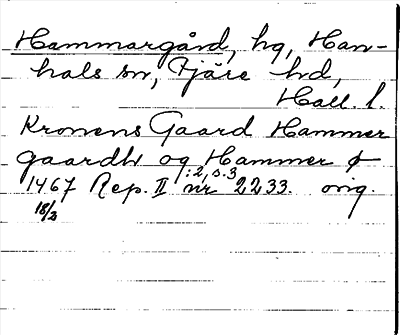 Hammargård, hg, Han-
hals sn, Fjäre hd,
Hall. l.
Kronens Gaard Hammer
gaardh og Hammer ф
:2, s. 3
1467 Rep. II nr 2233. orig.
18/3